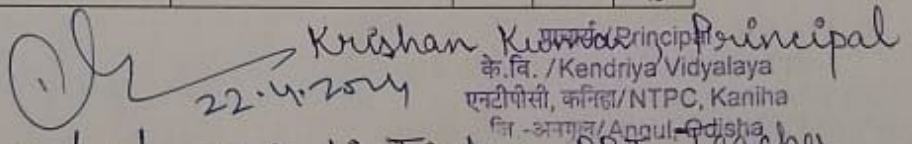 Krishan Kumar, Principal
प्राचार्य/Principal
22.4.2024
के.वि. /Kendriya Vidyalaya
एनटीपीसी, कनिहा/NTPC, Kaniha
जि.-अनगुल/Angul-Odisha